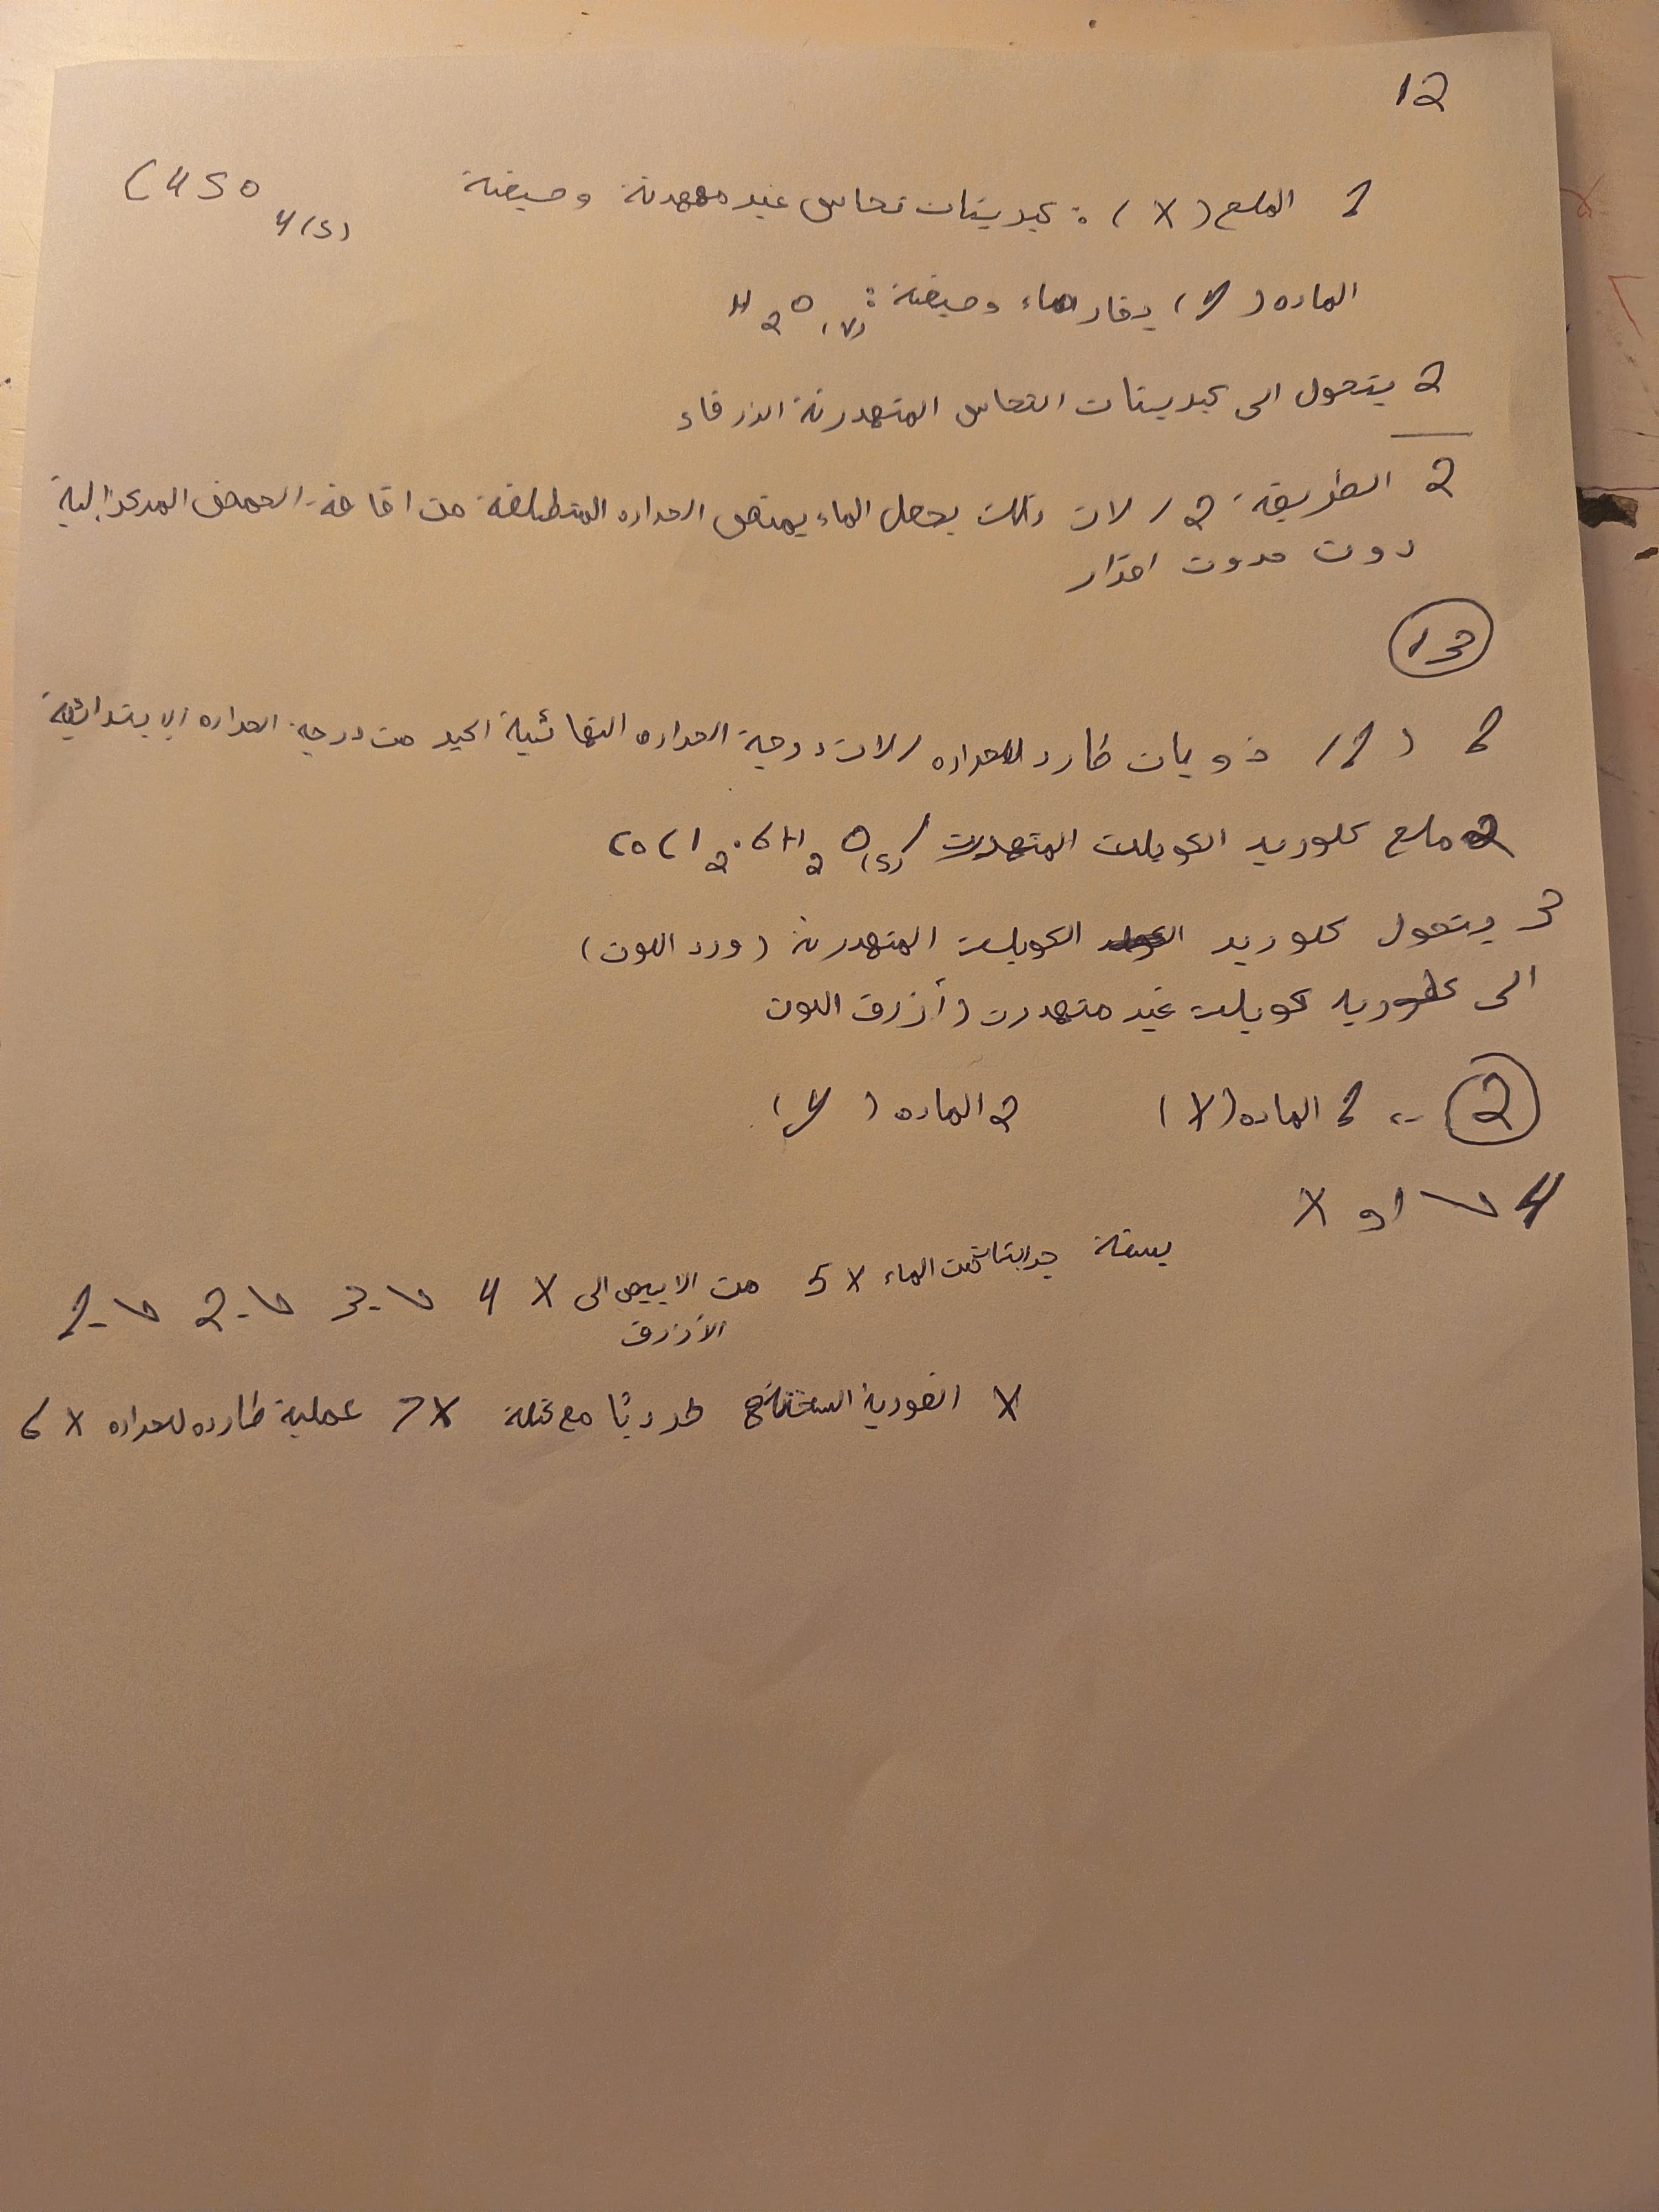 12
1 الملح (X) : كبريتات نحاس غير مهدرتة وصيغتة CuSO4(s)
الماده (y) بخار الماء وصيغتة : H2O(v)
2 يتحول الى كبريتات النحاس المتهدرتة الزرقاء
2 الطريقة 2 / لان ذلك يجعل الماء يمتص الحراره المنطلقة من اضافة الحمض المركز اليه
دون حدوث اضرار
13
1 (1/ ذوبان طارد للحراره / لان درجة الحراره النهائية اكبر من درجة الحراره الابتدائية
2 ملح كلوريد الكوبلت المتهدرت / CoCl2.6H2O(s)
3 يتحول كلوريد الكوبلت المتهدرتة (ورد اللون)
الى كلوريد كوبلت غير متهدرت (أزرق اللون
2 ب- 1 الماده (X) 2 الماده (y)
4 ✓ او X
1-✓ 2-✓ 3-✓ 4 X من الابيض الى الأزرق 5 X الماء
6 X عملية طارده للحراره 7 X طرديًا مع كتلة X الفورية